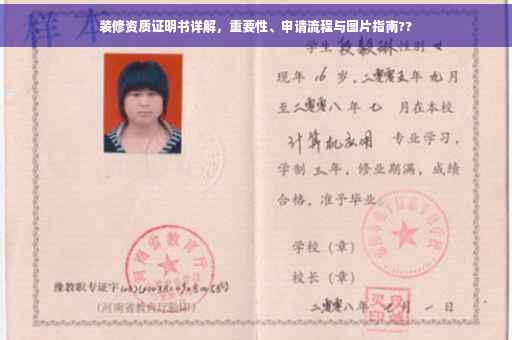 装修资质证明书详解，重要性、申请流程与图片指南??
样本
学生段毅琳性别女
现年16岁，二零零五年九月
至二零零八年七月在本校
计算机应用专业学习，
学制三年，修业期满，成绩
合格，准予毕业
学校（章）
校长（章）
二零零八年 月一日
河南省教育厅
豫教职专证字
（河南省教育厅验印）